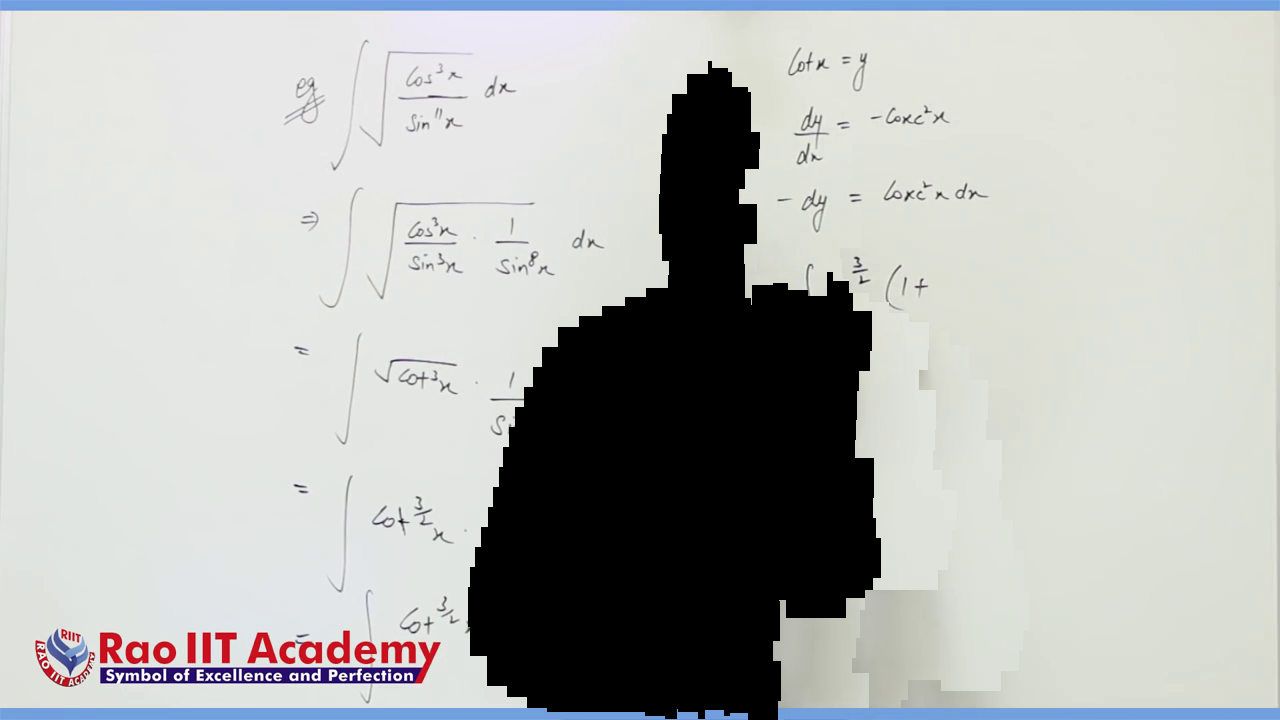 eg ∫ √(cos³x / sin¹¹x) dx
⇒ ∫ √(cos³x / sin³x · 1 / sin⁸x) dx
= ∫ √cot³x · 1 /
= ∫ cot^(3/2) x ·
= ∫ cot^(3/2)
cotx = y
dy/dx = -cosec²x
- dy = cosec²x dx
∫ ^(3/2) (1 +
RIIT
RAO IIT ACADEMY
Rao IIT Academy
Symbol of Excellence and Perfection